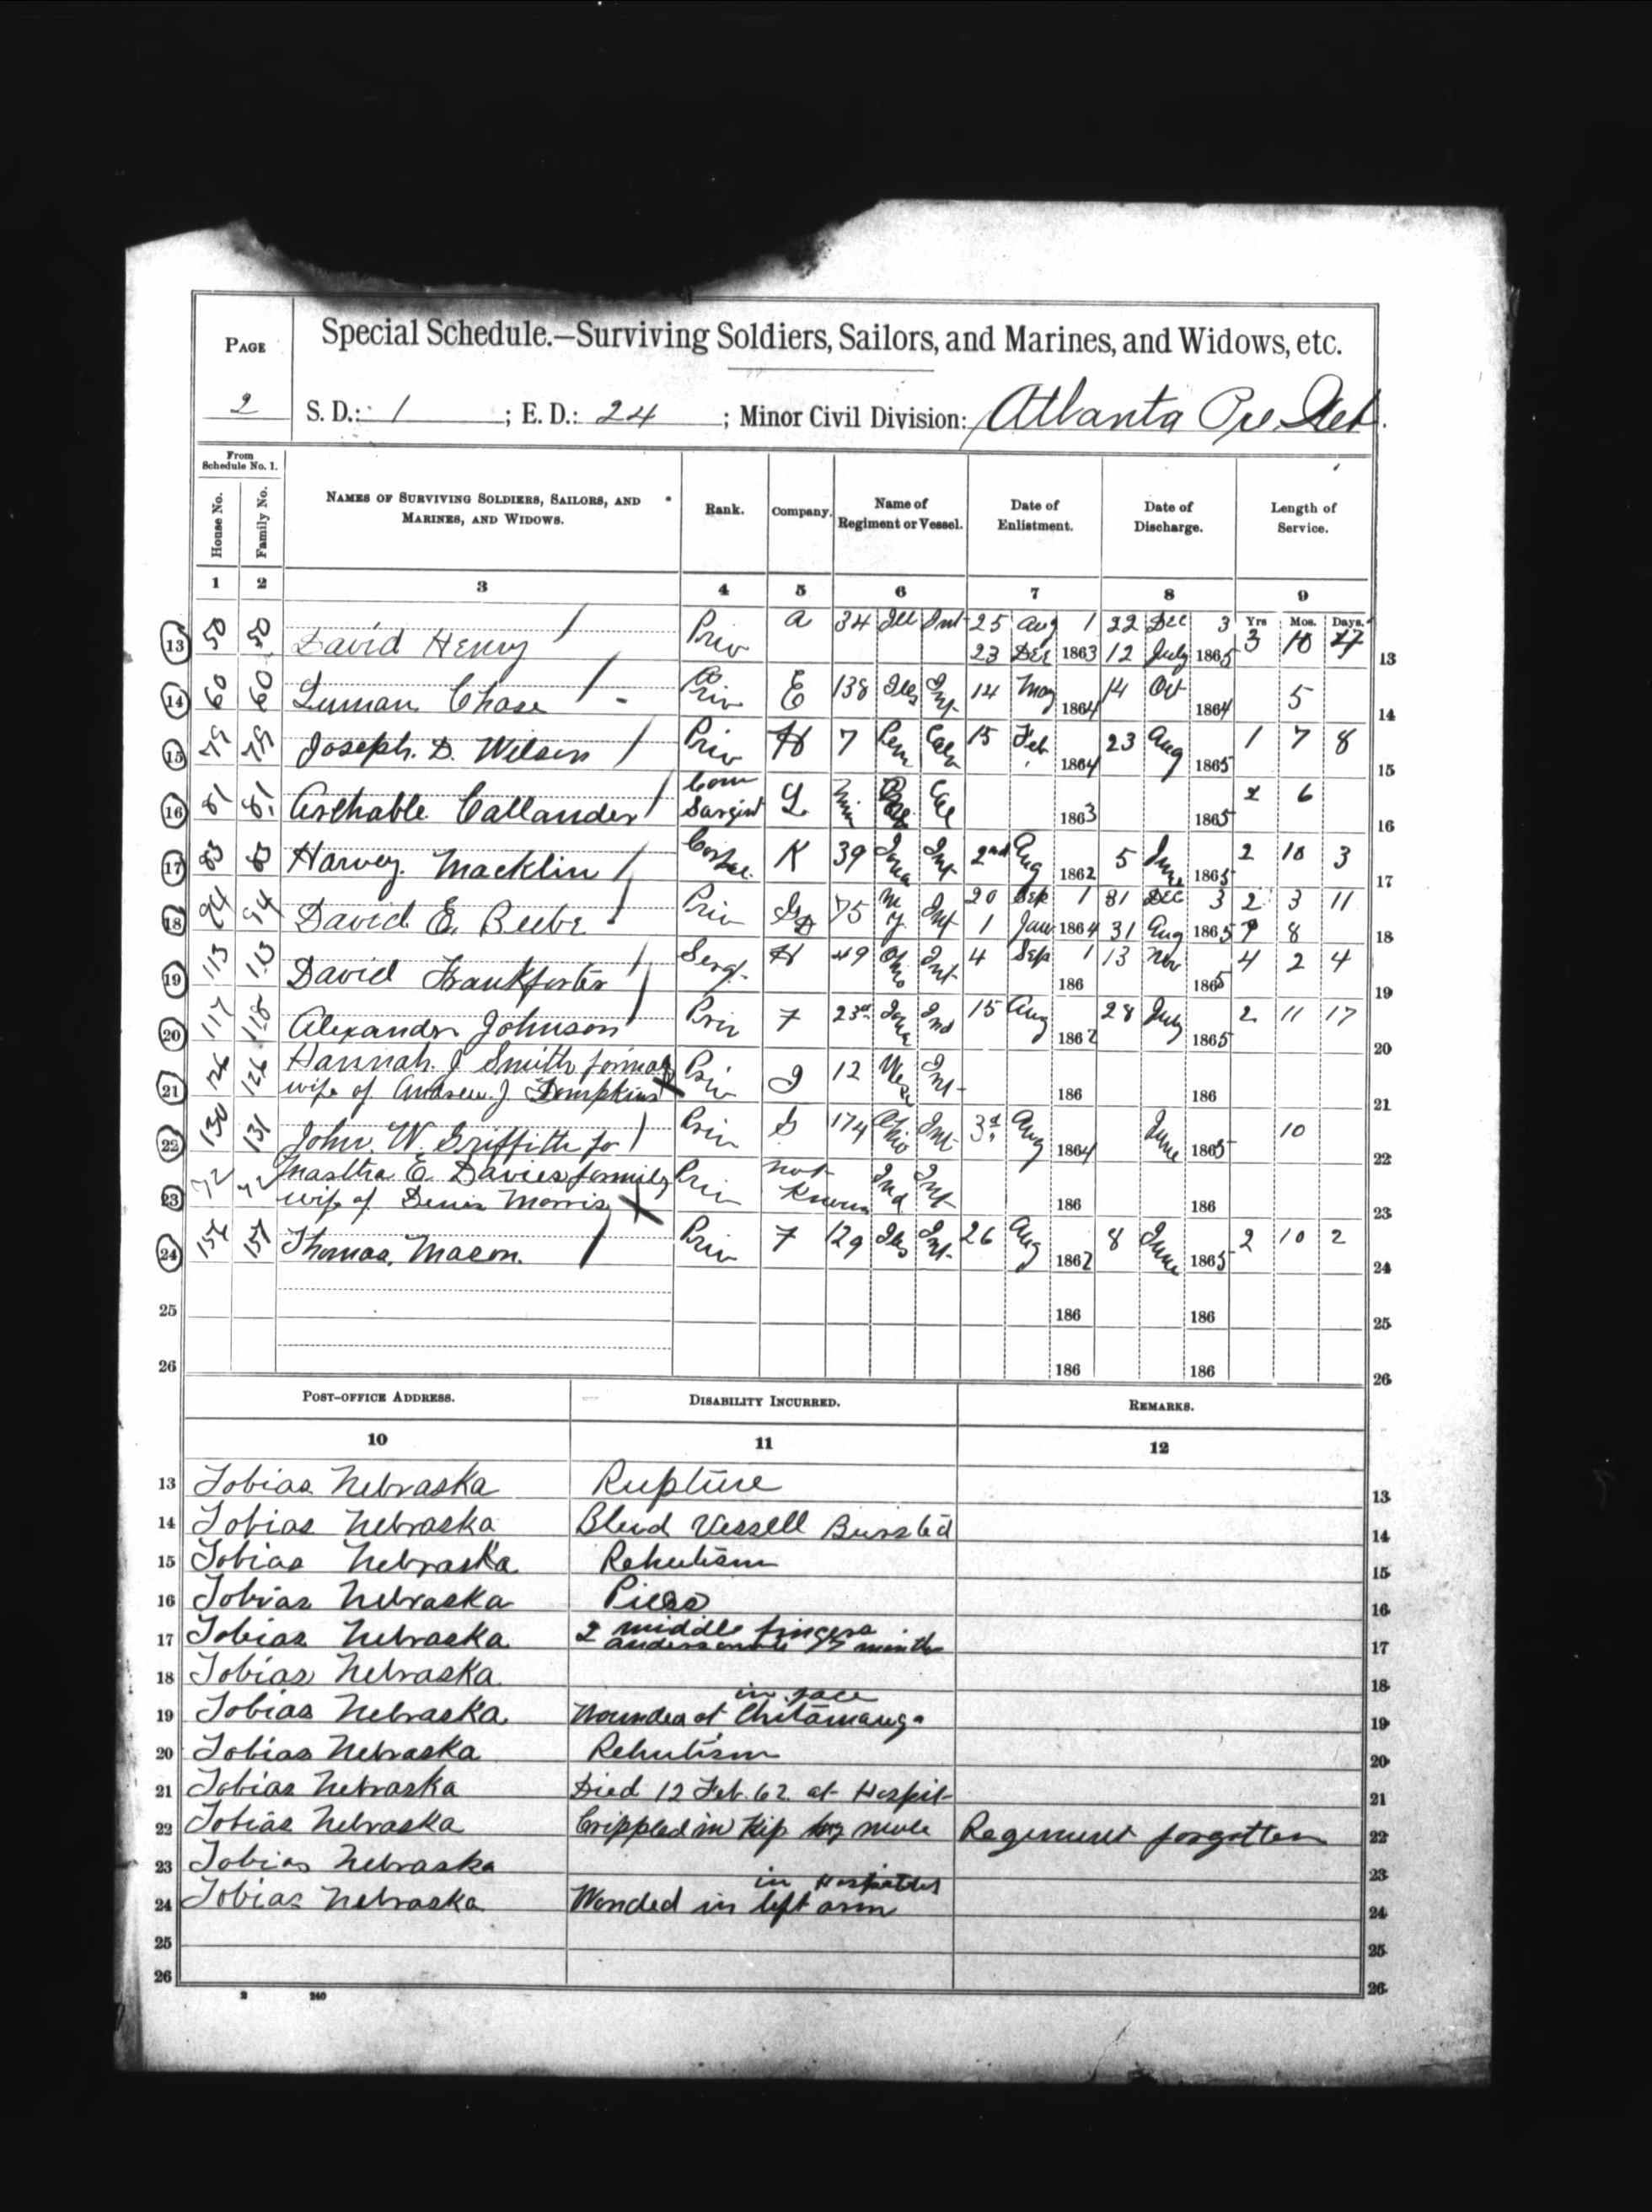 PAGE
2
Special Schedule.—Surviving Soldiers, Sailors, and Marines, and Widows, etc.
S. D.: 1 ; E. D.: 24 ; Minor Civil Division: Atlanta Pre Neb.
From Schedule No. 1.
House No. Family No. NAMES OF SURVIVING SOLDIERS, SAILORS, AND MARINES, AND WIDOWS. Rank. Company. Name of Regiment or Vessel. Date of Enlistment. Date of Discharge. Length of Service.
1 2 3 4 5 6 7 8 9
Yrs. Mos. Days.
13 50 50 David Henry Priv A 34 Ill Inf 25 Aug 1 22 Dec 3 3 10 27 13
23 Dec 1863 12 July 1865
14 60 60 Luman Chase Priv E 138 Ills Inf 14 May 1864 14 Oct 1864 5 14
15 79 79 Joseph. D. Wilson Priv H 7 Pen Cal 15 Feb 1864 23 Aug 1865 1 7 8 15
16 81 81 Arthable Callander Com Sargint L Cal 1863 1865 2 6 16
17 83 83 Harvey Macklin K 39 Iowa Inf 2nd Aug 1862 5 June 1865 2 10 3 17
18 94 94 David E. Beebe Priv 75 N Y. Inf 20 Sep 1 31 Dec 3 2 3 11 18
1 Jan 1864 31 Aug 1865 8
19 113 113 David Frankforter Sergt. H 49 Ohio Inf 4 Sep 1 186 13 Nov 1865 4 2 4 19
20 117 118 Alexander Johnson Priv F 23rd Iowa Ind 15 Aug 1862 28 July 1865 2 11 17 20
21 126 126 Hannah J Smith
wife of Andrew. J Tompkins Priv I 12 Inf 186 186 21
22 130 131 John. W. Griffith Priv G 174 Ohio Inf 3d Aug 1864 June 1865 10 22
23 72 72 Mastha E. Davies
wife of Morris Priv not Known Ind Inf 186 186 23
24 157 Thomas. Macon. Priv F 129 Ills Inf 26 Aug 1862 8 June 1865 2 10 2 24
25 186 186 25
26 186 186 26
POST-OFFICE ADDRESS. DISABILITY INCURRED. REMARKS.
10 11 12
13 Tobias Nebraska Rupture 13
14 Tobias Nebraska Blud Vessell Bursted 14
15 Tobias Nebraska Rehutism 15
16 Tobias Nebraska 16
17 Tobias Nebraska 2 middle fingers 17
18 Tobias Nebraska 18
in face
19 Tobias Nebraska Wounded at Chitamauga 19
20 Tobias Nebraska Rehutism 20
21 Tobias Nebraska Died 12 Feb. 62 at Hospit 21
22 Tobias Nebraska Crippled in Hip by mule Regiment forgotten 22
23 Tobias Nebraska 23
in
24 Tobias Nebraska Wonded in left arm 24
25 25
26 26
2 240